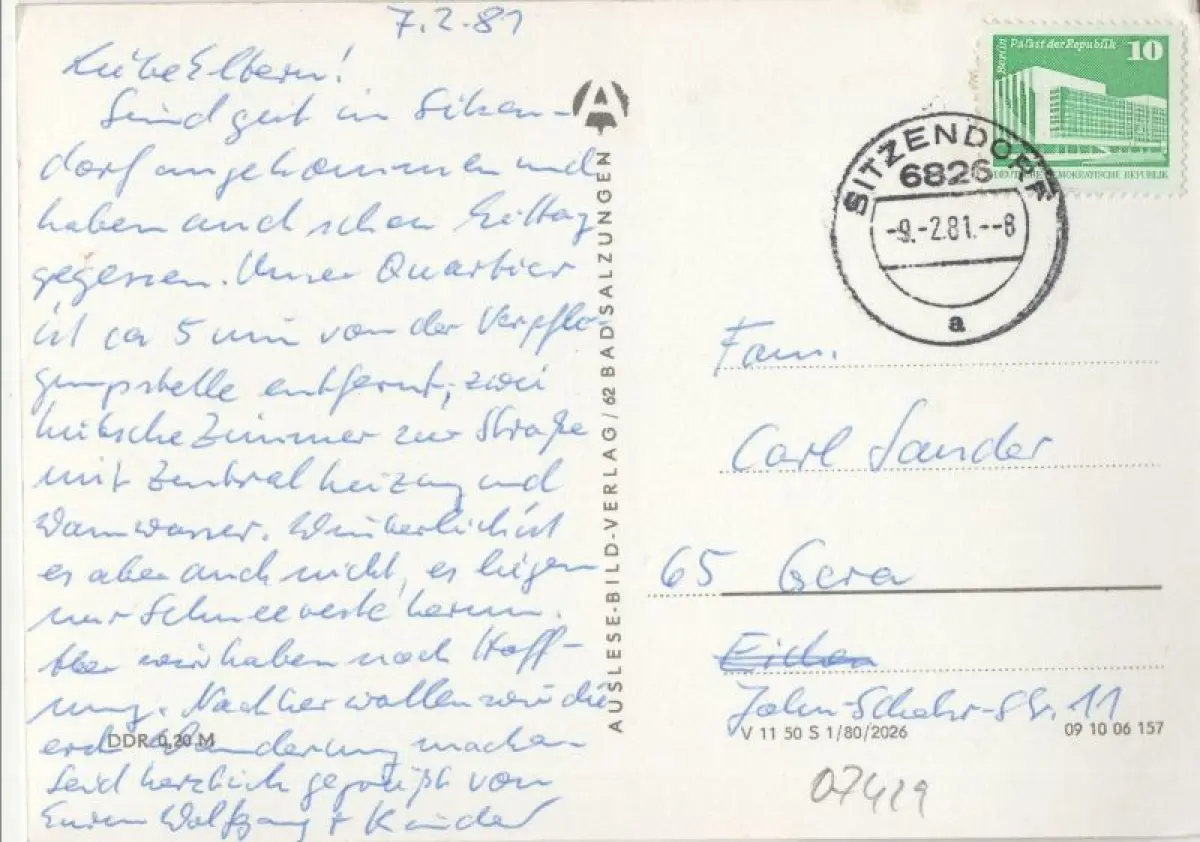 7.2.81
Liebe Eltern!
Sind gut in Sitzen-
dorf angekommen und
haben auch schon Mittag
gegessen. Unser Quartier
ist ca 5 min von der Verpfle-
gungsstelle entfernt, zwei
hübsche Zimmer zur Straße
mit Zentralheizung und
Warmwasser. Winterlich ist
es aber auch nicht, es liegen
nur Schneereste herum.
Aber wir haben noch Hoff-
nung. Nachher wollen wir die
erste Wanderung machen
Seid herzlich gegrüßt von
Euren Wolfgang + Kinder
DDR 0,20 M
AUSLESE-BILD-VERLAG / 62 BAD SALZUNGEN
Berlin Palast der Republik 10
DEUTSCHE DEMOKRATISCHE REPUBLIK
SITZENDORF
6826
-9.-2.81.--8
a
Fam.
Carl Sander
65 Gera
John-Schehr-Str. 11
V 11 50 S 1/80/2026
09 10 06 157
07429